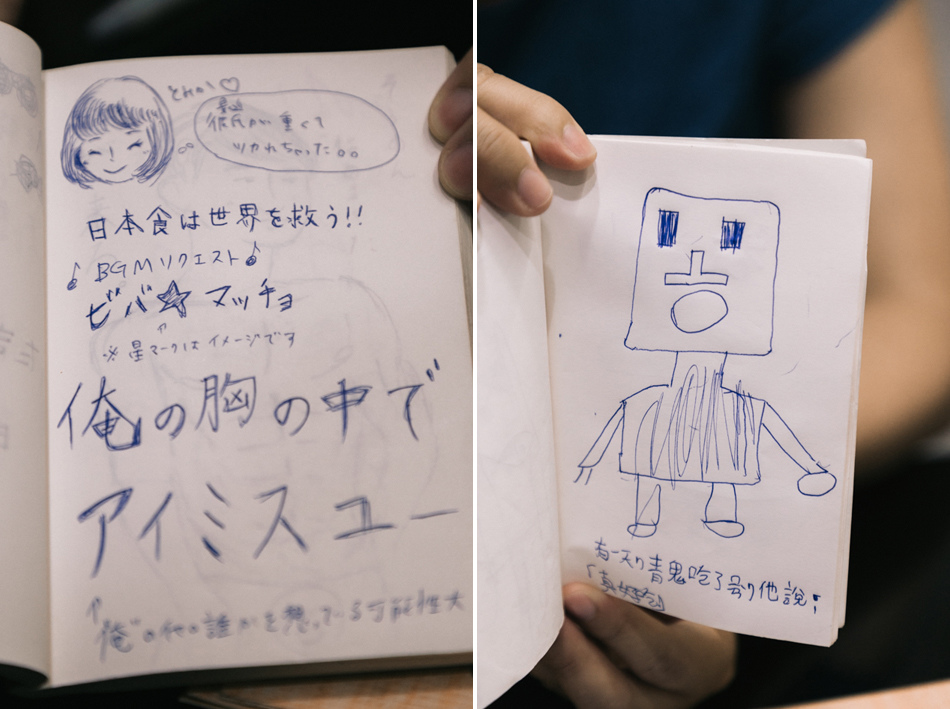 最近
彼氏が重くて
ツカれちゃった。。
日本食は世界を救う!!
♪BGMリクエスト♪
ビバ☆マッチョ
↑
※星マークはイメージです
俺の胸の中で
アイミスユー
↑
"俺"の他の誰かを想っている可能性大
有一天
青鬼吃了
他說:
「真好吃」